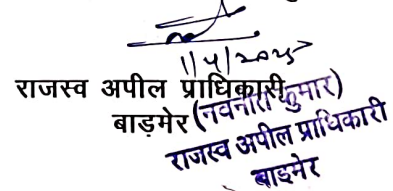 1/4/2025
राजस्व अपील प्राधिकारी
बाड़मेर
(नवनीत कुमार)
राजस्व अपील प्राधिकारी
बाड़मेर